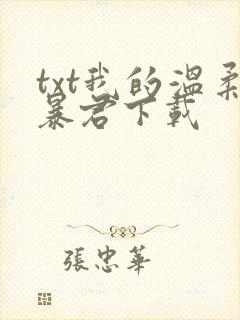 txt我的溫柔
暴君下載
張忠華